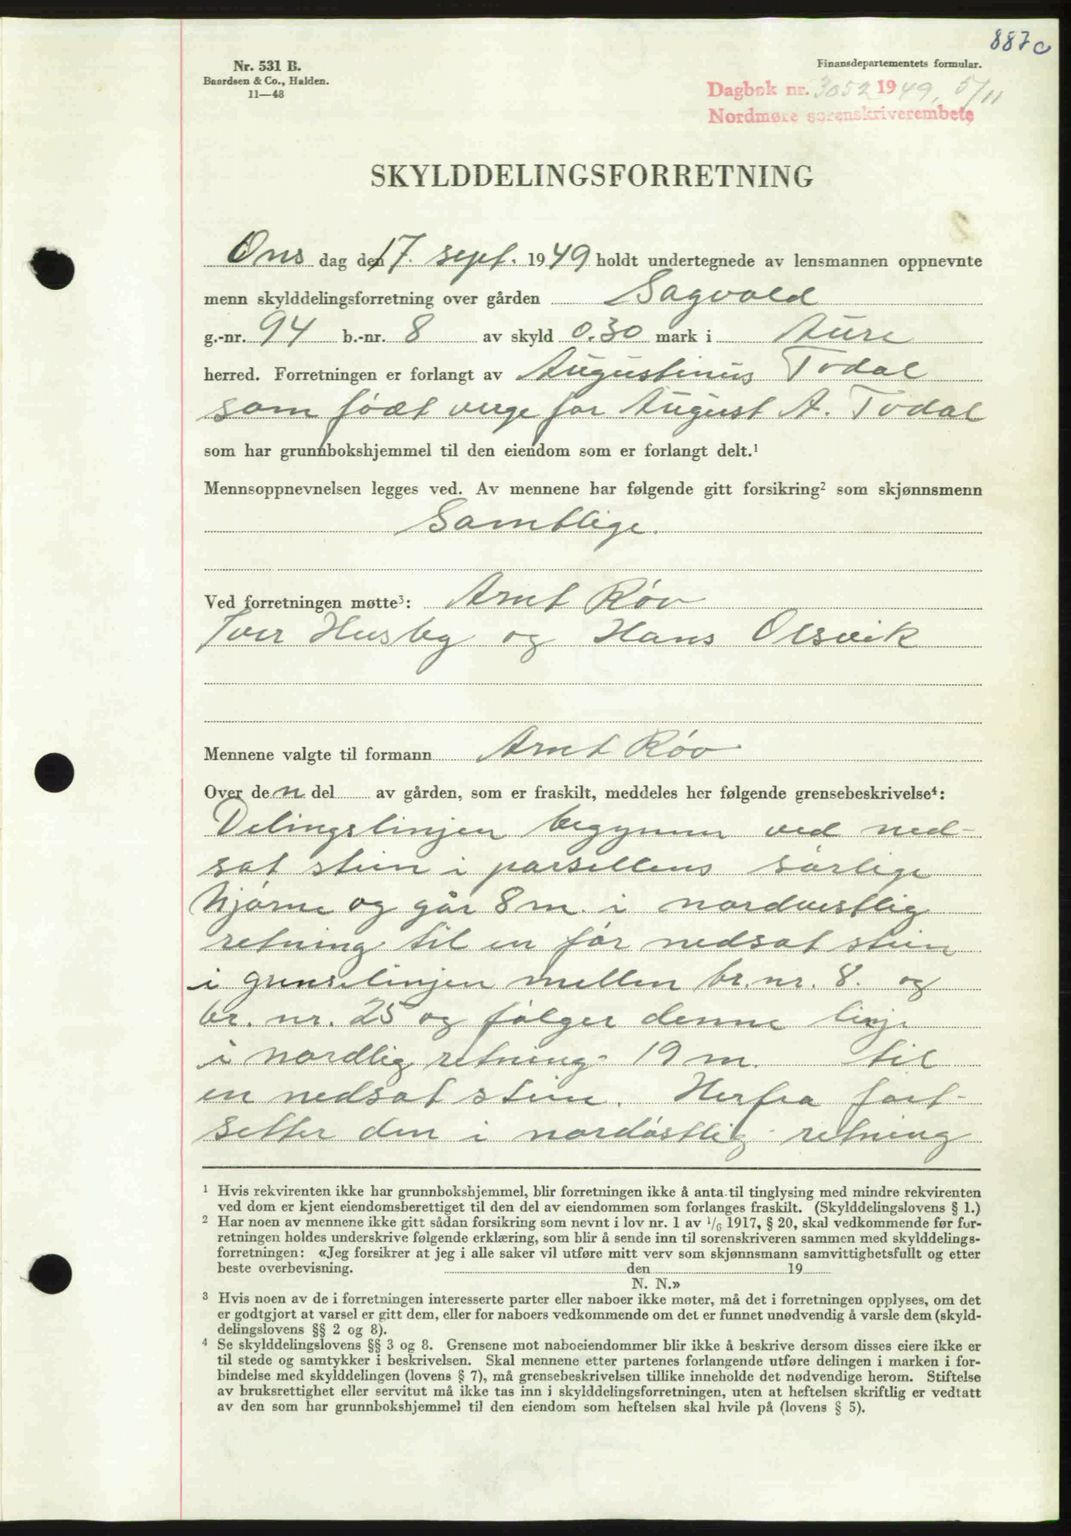 887 c
Nr. 531 B.
Baardsen & Co., Halden.
11—48
Finansdepartementets formular.
Dagbok nr. 3052 1949, 5/11
Nordmøre sorenskriverembete
SKYLDDELINGSFORRETNING
Ons dag den 17. sept. 1949 holdt undertegnede av lensmannen oppnevnte
menn skylddelingsforretning over gården Sagvold
g.-nr. 94 b.-nr. 8 av skyld 0.30 mark i Aure
herred. Forretningen er forlangt av Augustinus Todal
som født verge for August A. Todal
som har grunnbokshjemmel til den eiendom som er forlangt delt.¹
Mennsoppnevnelsen legges ved. Av mennene har følgende gitt forsikring² som skjønnsmenn
Samtlige.
Ved forretningen møtte³: Arnt Røv
Iver Husby og Hans Olsvik
Mennene valgte til formann Arnt Røv
Over den del av gården, som er fraskilt, meddeles her følgende grensebeskrivelse⁴:
Delingslinjen begynner ved ned-
sat stein i parsellens sørlige
hjørne og går 8 m. i nordvestlig
retning til en før nedsat stein
i grenselinjen mellem br. nr. 8. og
br. nr. 25 og følger denne linje
i nordlig retning 19 m. til
en nedsat stein. Herfra fort-
setter den i nordøstlig retning
¹ Hvis rekvirenten ikke har grunnbokshjemmel, blir forretningen ikke å anta til tinglysing med mindre rekvirenten
ved dom er kjent eiendomsberettiget til den del av eiendommen som forlanges fraskilt. (Skylddelingslovens § 1.)
² Har noen av mennene ikke gitt sådan forsikring som nevnt i lov nr. 1 av 1/6 1917, § 20, skal vedkommende før for-
retningen holdes underskrive følgende erklæring, som blir å sende inn til sorenskriveren sammen med skylddelings-
forretningen: «Jeg forsikrer at jeg i alle saker vil utføre mitt verv som skjønnsmann samvittighetsfullt og etter
beste overbevisning. den 19
N. N.»
³ Hvis noen av de i forretningen interesserte parter eller naboer ikke møter, må det i forretningen opplyses, om det
er godtgjort at varsel er gitt dem, eller for naboers vedkommende om det er funnet unødvendig å varsle dem (skyld-
delingslovens §§ 2 og 8).
⁴ Se skylddelingslovens §§ 3 og 8. Grensene mot naboeiendommer blir ikke å beskrive dersom disses eiere ikke er
til stede og samtykker i beskrivelsen. Skal mennene etter partenes forlangende utføre delingen i marken i for-
bindelse med skylddelingen (lovens § 7), må grensebeskrivelsen tillike inneholde det nødvendige herom. Stiftelse
av bruksrettighet eller servitut må ikke tas inn i skylddelingsforretningen, uten at heftelsen skriftlig er vedtatt
av den som har grunnbokshjemmel til den eiendom som heftelsen skal hvile på (lovens § 5).